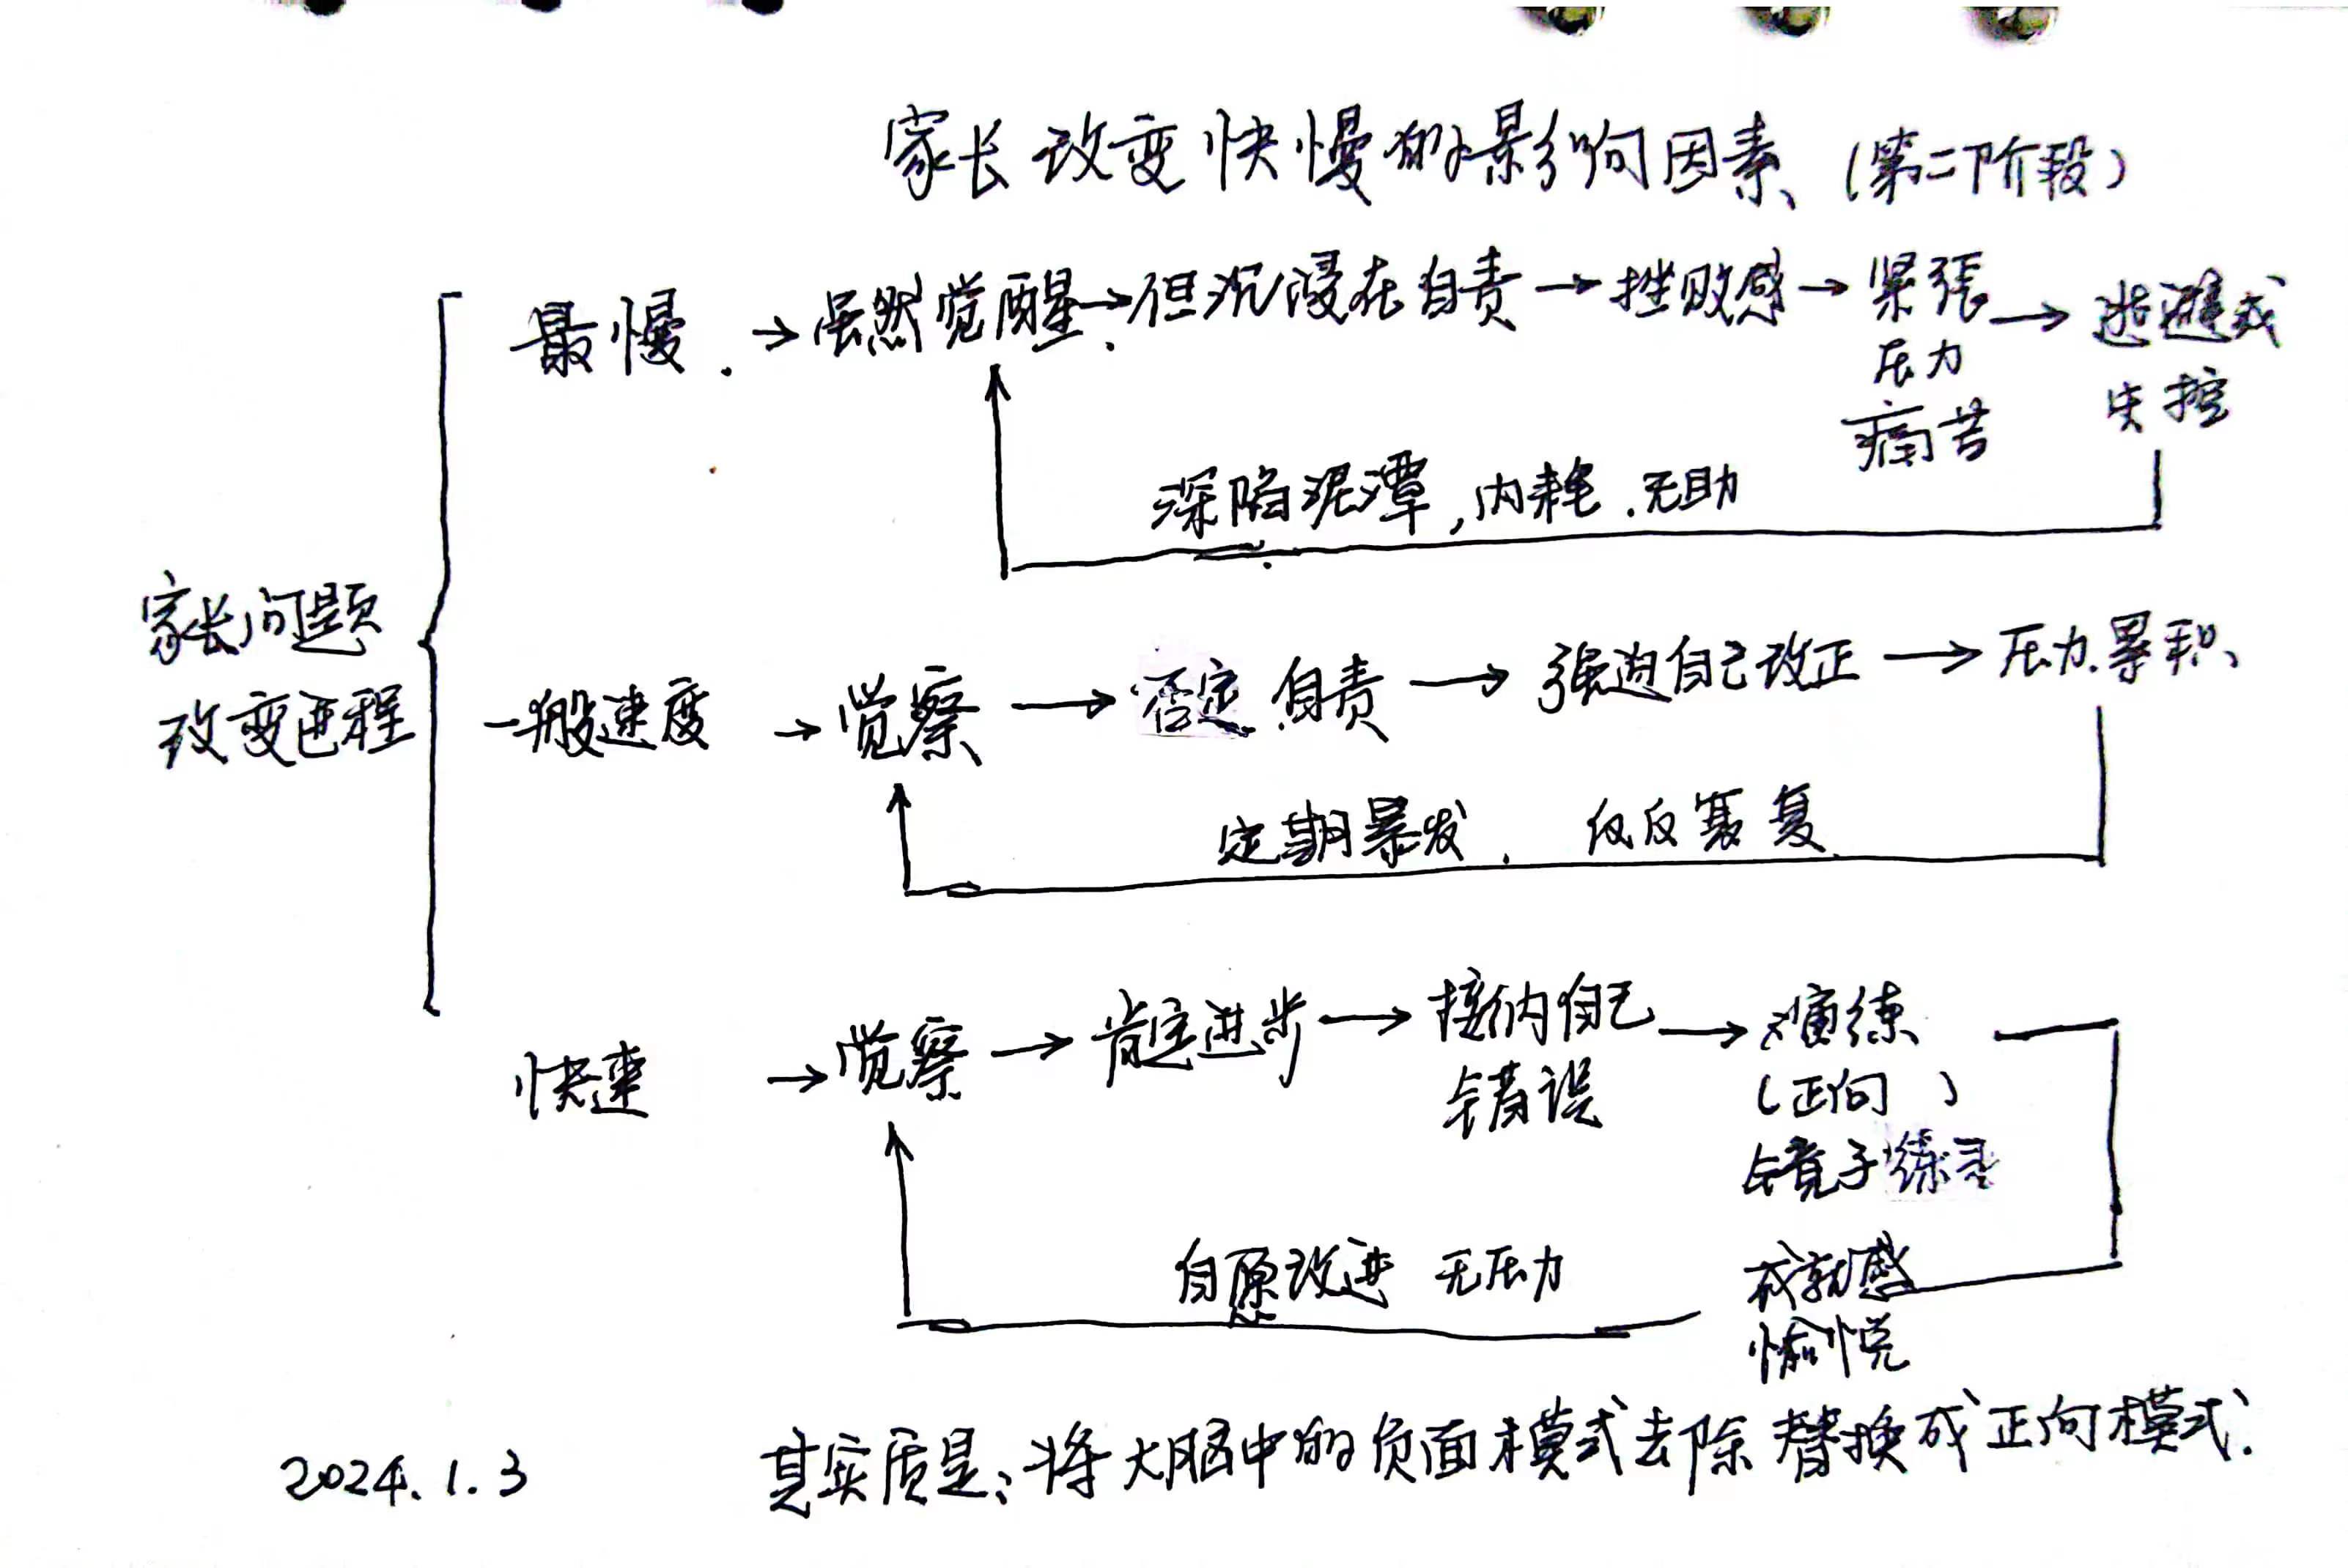 家长改变快慢的影响因素、(第二阶段)
最慢. →虽然觉醒→但沉浸在自责→挫败感→紧張→逃避或
压力 失控
痛苦
深陷泥潭,内耗.无助
家长问题
改变进程
一般速度 →觉察→否定.自责→强迫自己改正→压力.累积、
定期暴发, 反反复复
快速 →觉察→肯定进步→接纳自己→演练
错误 (正向 )
镜子练习
自愿改进 无压力 成就感
愉悦
2024.1.3 其实质是:将大脑中的负面模式去除替换成正向模式.